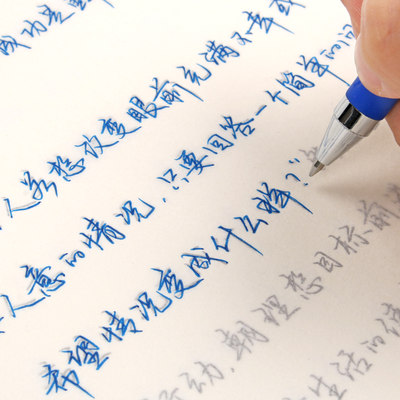 成功是
人若想改变眼前充满不幸或
人意的情况，只要回答一个简单的问
希望情况变成什么样？”
行动，朝理想目标前
生活的